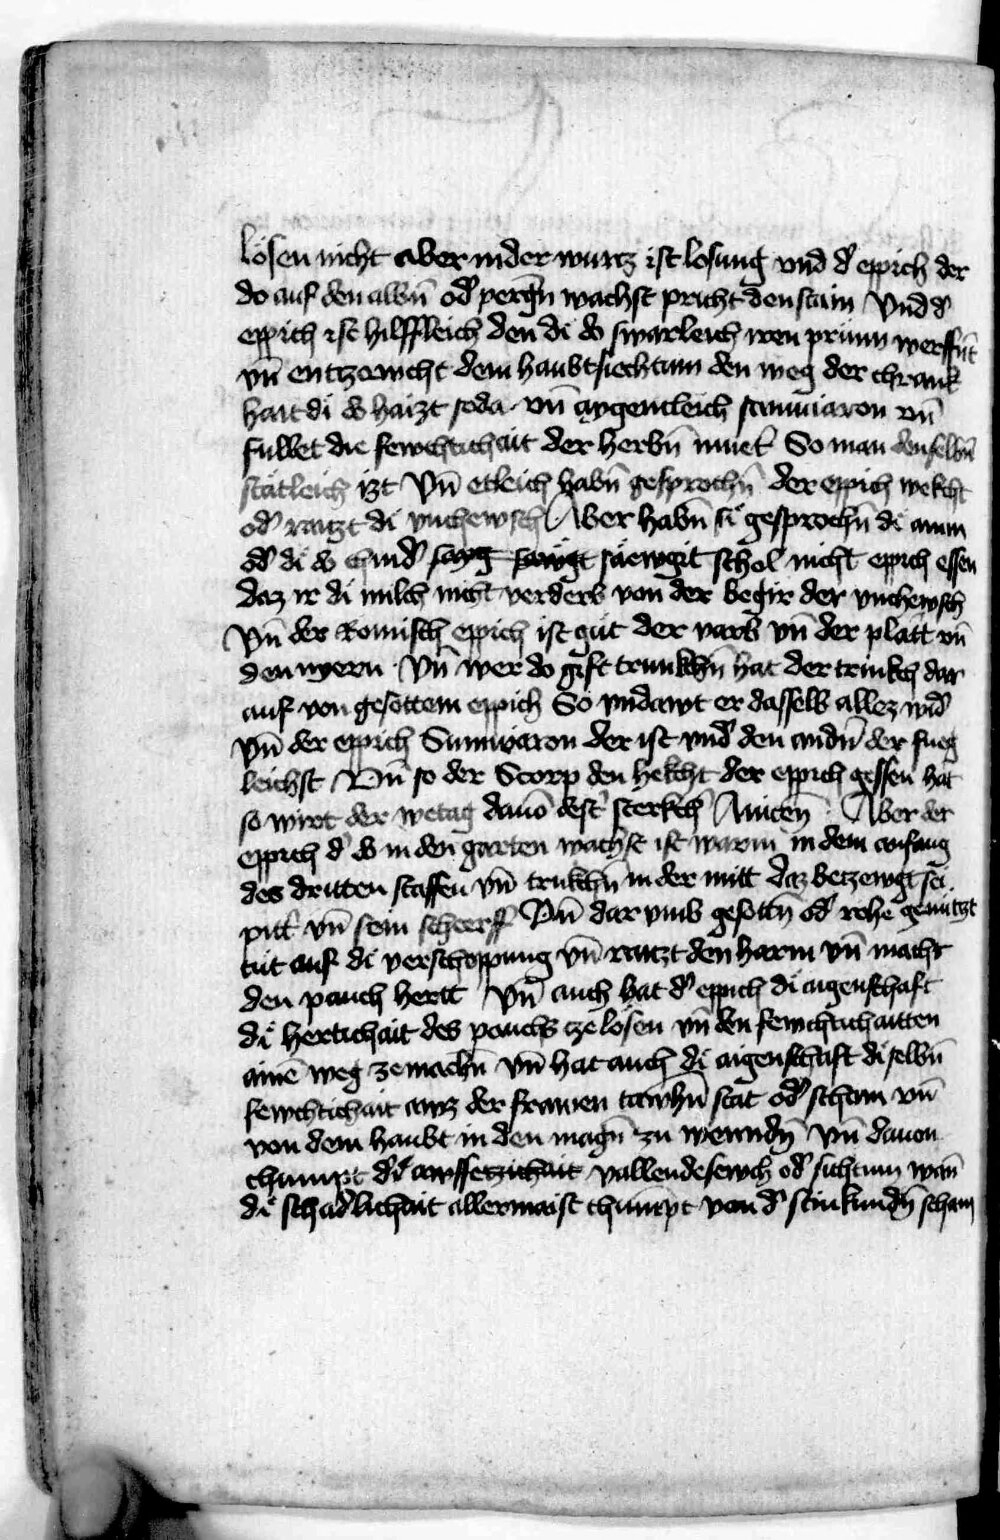 lösen nicht aber in der wurtz ist losung vnd d' eppich der
do auf den albn̄ od' perḡn wachst pricht den stain Vnd d'
eppich ist hilffleich den di do swarleich iren prunn werffn̄t
vn̄ entzewcht dem haubtsiechtum den weg der chrank
hait di do haizt soda vn̄ aygentleich scannaron vn̄
fullet die fewchtichait der herbn̄ muet' So man denselbn̄
stätleich izt Vn̄ etleich habn̄ gesprochn̄ der eppich wekcht
od' raizt di vnchewsch Aber habn̄ si gesprochn̄ di amm
od' di do chind' sayg sawgt säewgit schol nicht eppich essen
daz ir di milch nicht verderb von der begir der vnchewsch
Vn̄ der Romisch eppich ist güt der varb vn̄ der platt vn̄
den nyern Vn̄ wer do gift trunkchn̄ hat der trinkch dar
auf von gesottem eppich So vndawt er dasselb allez wid'
Vn̄ der eppich Sumwaron der ist vnd' den andn̄ der fueg
leichst Vn̄ so der Scorp den hekcht der eppich gessen hat
so wirt der wetag dauō dest' sterkch' Auicen̄ Aber der
eppich d' do in den garten wachst ist warm in dem anfang
des dritten staffen vn̄ trukchn̄ in der mitt daz betzewgt sei
pitt' vn̄ sein scherff Vn̄ dar vmb gesottn̄ od' rohe genützt
tüt auf di verschoppung vn̄ raizt den harm vn̄ macht
den pauch hertt Vn̄ auch hat d' eppich di aigenschaft
di hertichait des pauchs ze lösen vn̄ den fewchtichaitten
ainē weg ze machn̄ vn̄ hat auch di aigenschaft diselbn̄
fewchtichait awz der frawen tawhn̄ stat od' scham vn̄
von dem haubt in den magn̄ zu wenndn̄ Vn̄ dauon
chumpt di awssetzichait vallendesewch od' sichtum wan̄
di schadlichait allermaist chumpt von d' stinkundn̄ scham